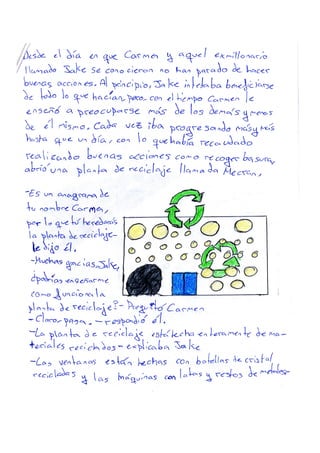 Desde el día en que Carmen y aquel exmillonario
llamado Jake se conocieron no han parado de hacer
buenas acciones. Al principio, Jake intetaba beneficiarse
de todo lo que hacían, pero con el tiempo Carmen le
enseñó a preocuparse más de los demás y menos
de él mismo. Cada vez iba progresando más y más
hasta que un día, con lo que había recaudado
realizando buenas acciones como recoger basura,
abrió una planta de reciclaje llamada Mecran.
-Es un anagrama de
tu nombre Carmen,
por lo que tú heredarás
la planta de reciclaje-
le dijo él.
-Muchas gracias, Jake,
¿podrías enseñarme
como funciona la
planta de reciclaje?- Preguntó Carmen
-Claro, pasa. - respondió él.
-La planta de reciclaje está hecha enteramente de ma-
teriales reciclados - explicaba Jake
-Las ventanas están hechas con botellas de cristal
recicladas y las máquinas con latas y restos de metales-